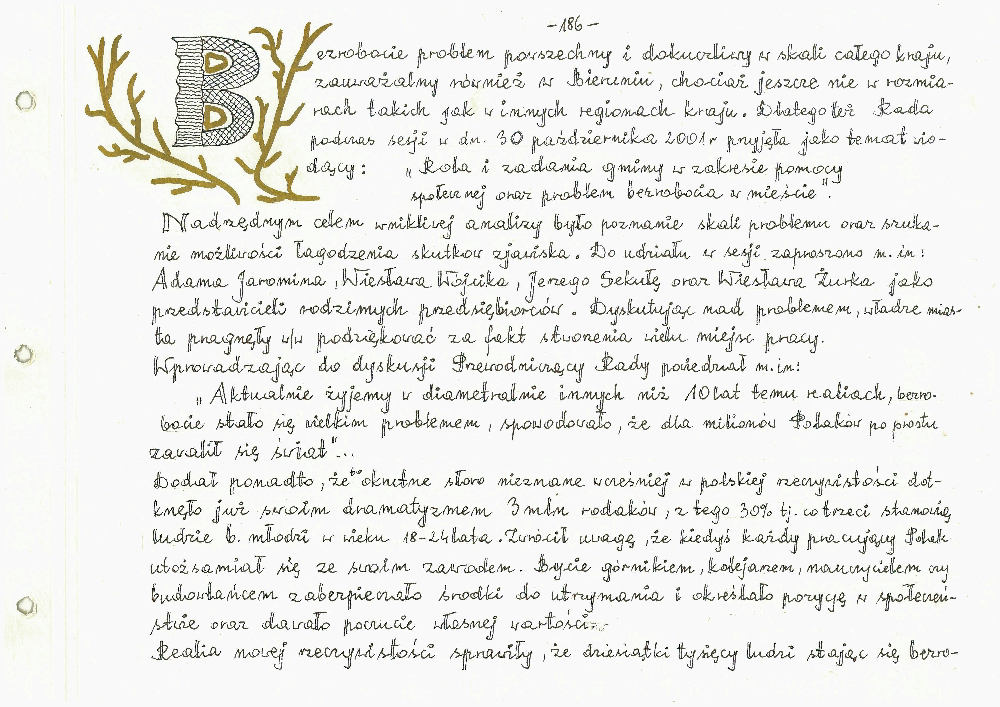 -186-
Bezrobocie problem powszechny i dokuczliwy w skali całego kraju,
zauważalny również w Bieruniu, chociaż jeszcze nie w rozmia-
rach takich jak w innych regionach kraju. Dlatego też Rada
podczas sesji w dn. 30 października 2001r przyjęła jako temat wio-
dący: „Rola i zadania gminy w zakresie pomocy
społecznej oraz problem bezrobocia w mieście".
Nadrzędnym celem wnikliwej analizy było poznanie skali problemu oraz szuka-
nie możliwości łagodzenia skutków zjawiska. Do udziału w sesji zaproszono m.in:
Adama Jaromina, Wiesława Wójcika, Jerzego Sekułę oraz Wiesława Żurka jako
przedstawicieli rodzimych przedsiębiorców. Dyskutując nad problemem, władze mias-
ta pragnęły w/w podziękować za fakt stworzenia wielu miejsc pracy.
Wprowadzając do dyskusji Przewodniczący Rady powiedział m.in:
„Aktualnie żyjemy w diametralnie innych niż 10 lat temu realiach, bezro-
bocie stało się wielkim problemem, spowodowało, że dla milionów Polaków po prostu
zawalił się świat"...
Dodał ponadto, że to okrutne słowo nieznane wcześniej w polskiej rzeczywistości dot-
knęło już swoim dramatyzmem 3 mln rodaków, z tego 30% tj. co trzeci stanowią
ludzie b. młodzi w wieku 18-24 lata. Zwrócił uwagę, że kiedyś każdy pracujący Polak
utożsamiał się ze swoim zawodem. Bycie górnikiem, kolejarzem, nauczycielem czy
budowlańcem zabezpieczało środki do utrzymania i określało pozycję w społeczeń-
stwie oraz dawało poczucie własnej wartości.
Realia nowej rzeczywistości sprawiły, że dziesiątki tysięcy ludzi stając się bezro-